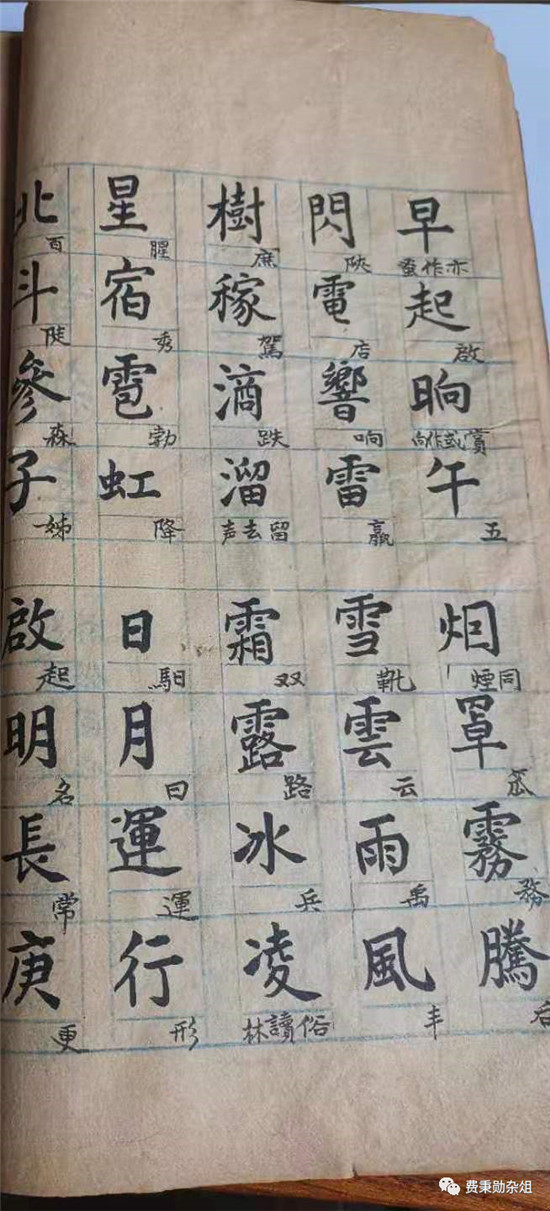 早亦作蚤起啟晌賞或作向午五
烟同煙罩霧務騰
閃陝電店響响雷羸
雪靴雲云雨禹風丰
樹庶稼駕滴跌溜留去声
霜双露路冰兵凌俗讀林
星腥宿秀雹勃虹降
日馹月曰運運行形
北百斗陡參森子姊
啟起明名長常庚更
费秉勋杂俎